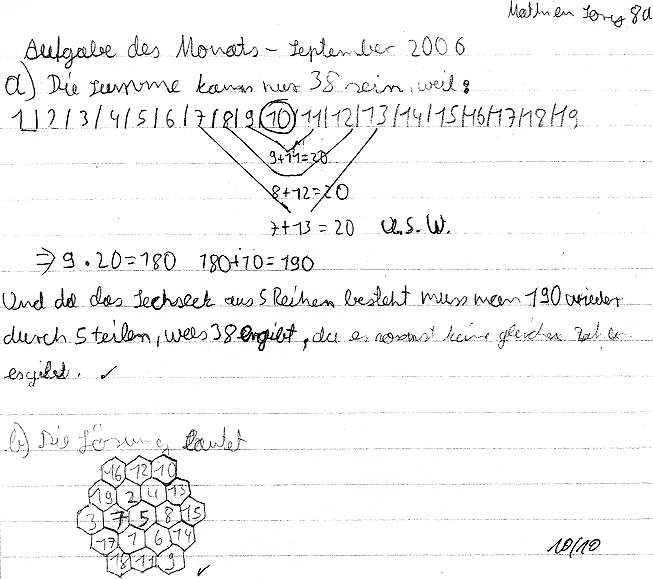 8a
Aufgabe des Monats - September 2006
a) Die Summe kann nur 38 sein, weil:
1/2/3/4/5/6/7/8/9/10/11/12/13/14/15/16/17/18/19
9+11=20
8+12=20
7+13=20 U.S.W.
⇒ 9 · 20 = 180 180+10=190
Und da das Sechseck aus 5 Reihen besteht muss man 190 wieder
durch 5 teilen, was 38 ergibt, da es sonst keine gleichen Zahlen
ergibt. ✓
b) Die Lösung lautet
16 12 10
19 2 4 13
3 7 5 8 15
17 1 6 14
18 11 9 ✓
10/10